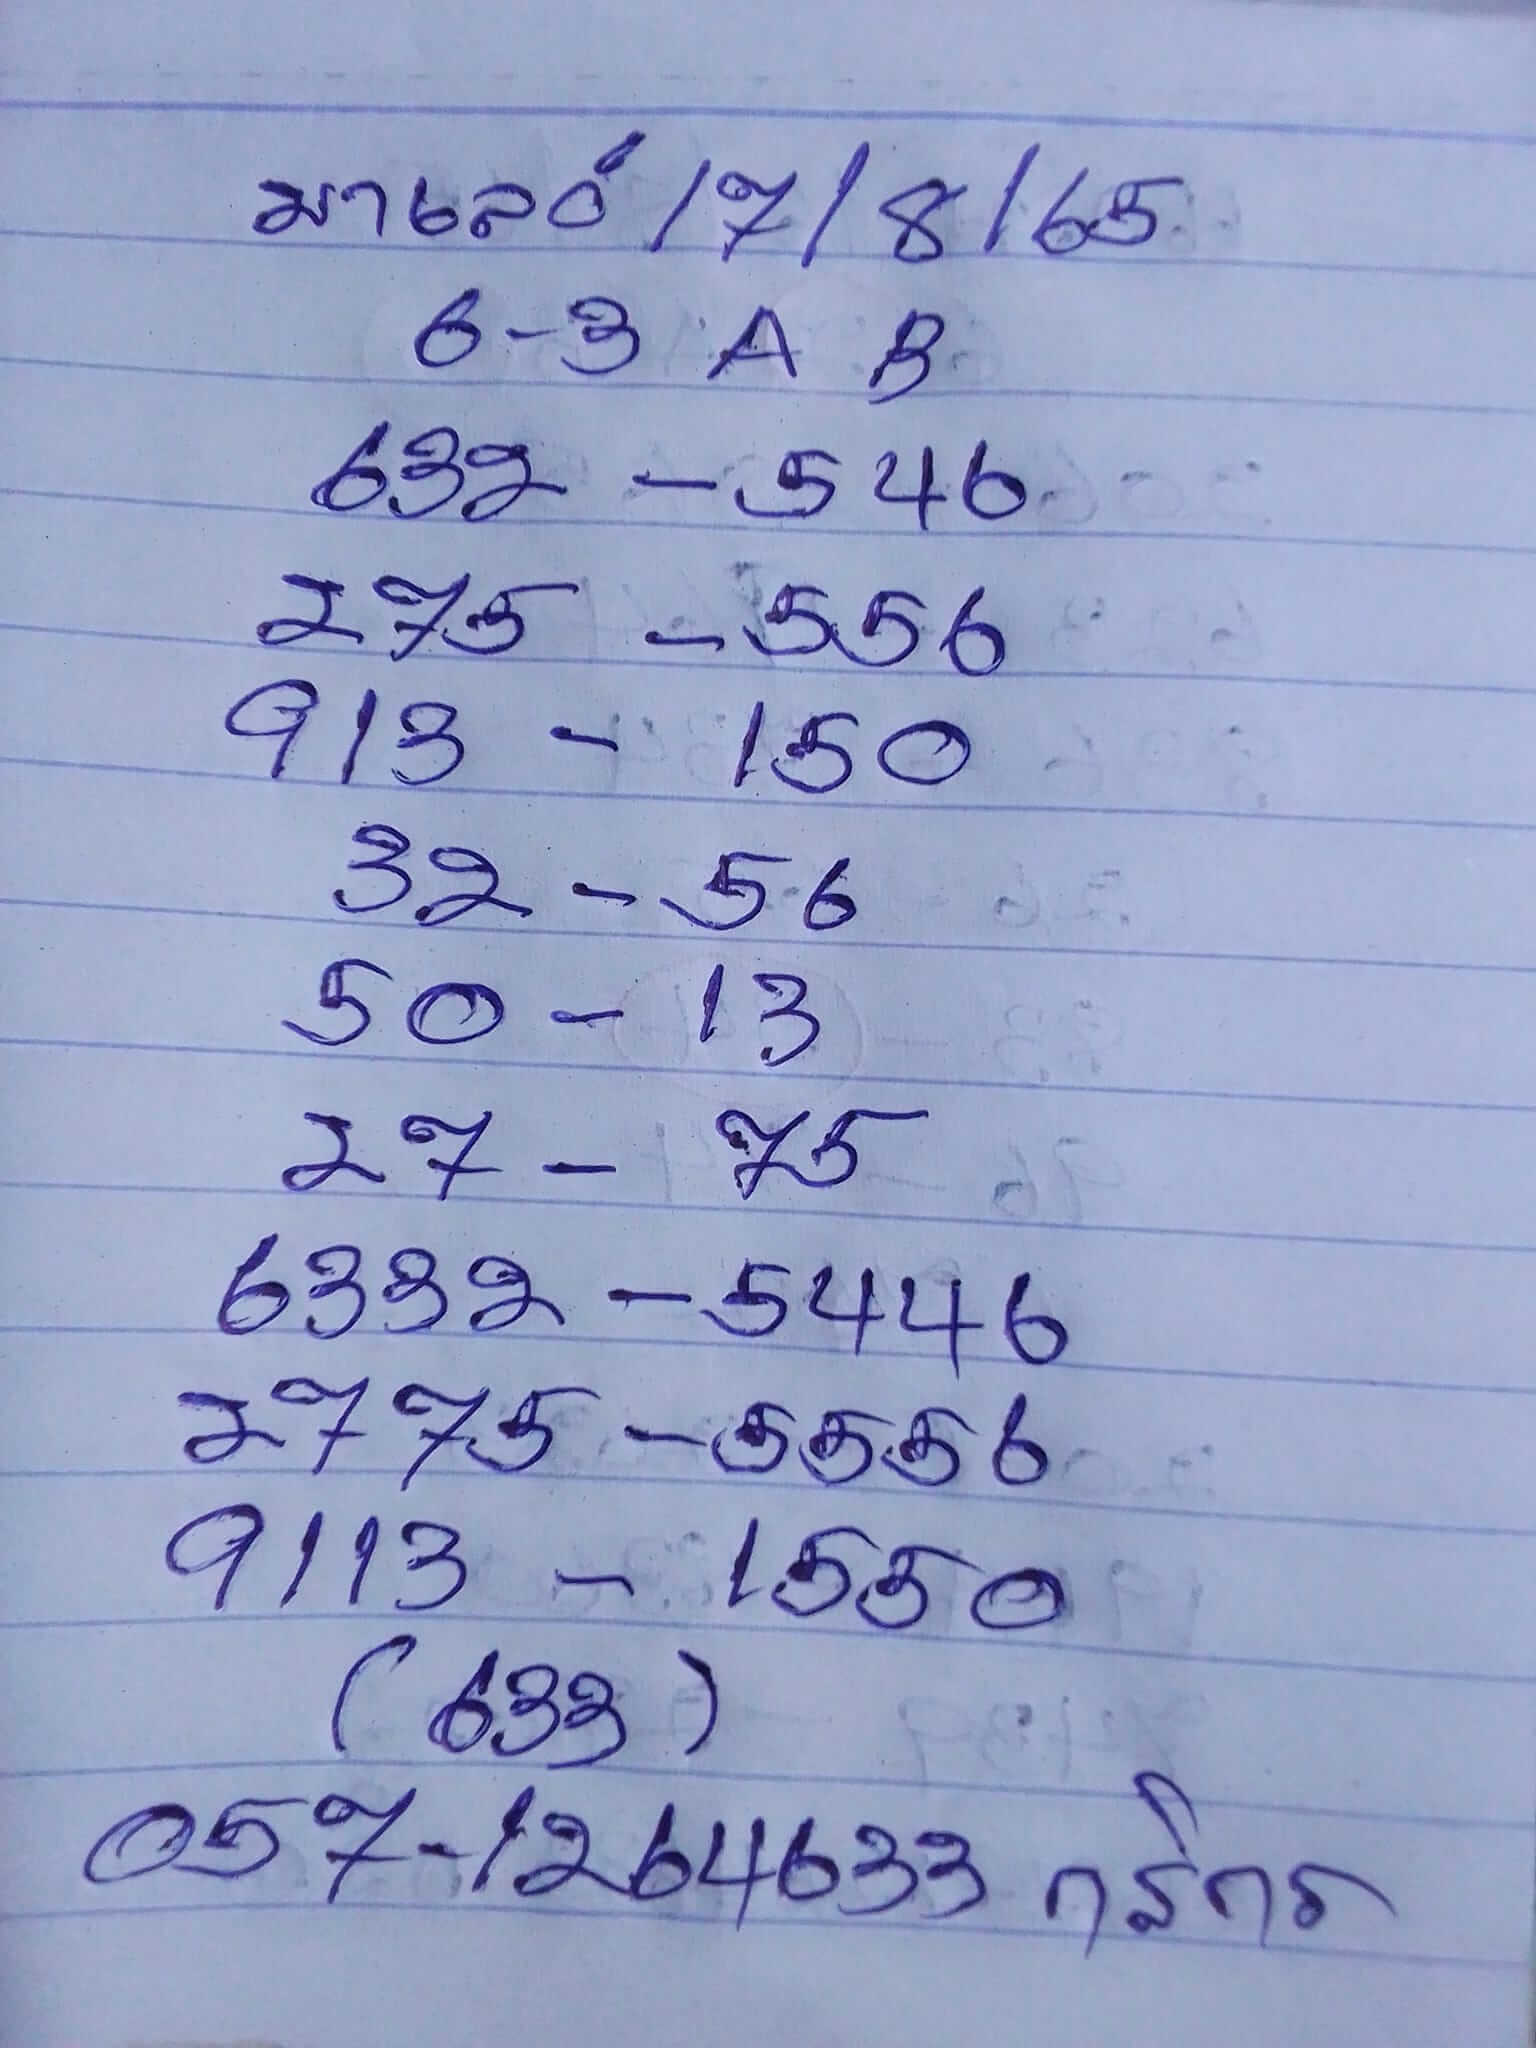 มาเลย์ 17/8/65
6-3 A B
632 - 546
275 - 556
913 - 150
32 - 56
50 - 13
27 - 75
6332 - 5446
2775 - 5556
9113 - 1550
(633)
057-1264633 กสิกร